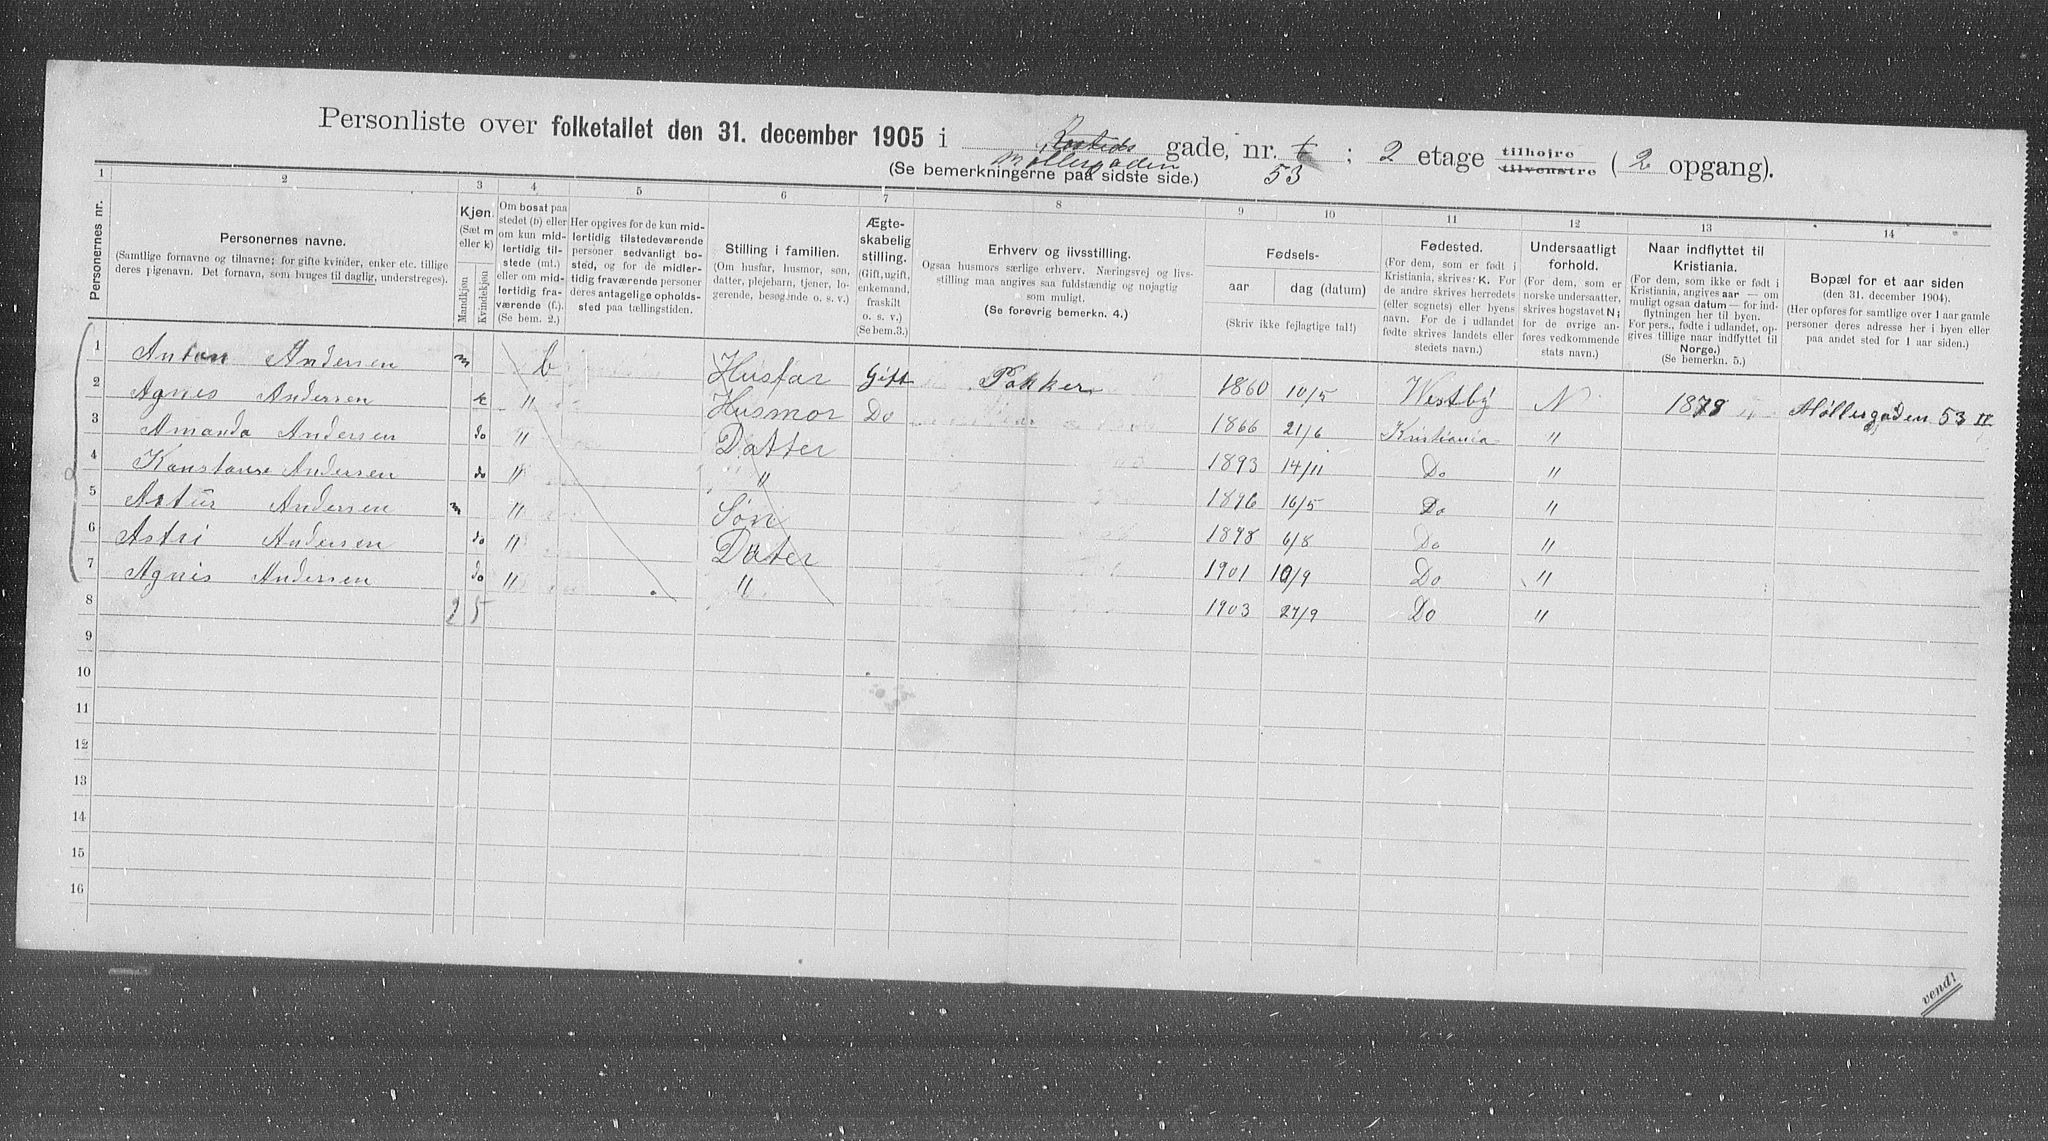 Personliste over folketallet den 31. december 1905 i gade, nr. ; 2 etage tilhøire
tilvenstre (2 opgang).
Møllergaden 53
(Se bemerkningerne paa sidste side.)
1 2 3 4 5 6 7 8 9 10 11 12 13 14
Personernes nr.
Personernes navne.
(Samtlige fornavne og tilnavne; for gifte kvinder, enker etc. tillige
deres pigenavn. Det fornavn, som bruges til daglig, understreges).
Kjøn.
(Sæt m
eller k)
Mandkjøn
Kvindekjøn
Om bosat paa
stedet (b) eller
om kun mid-
lertidig til-
stede (mt.)
eller om mid-
lertidig fra-
værende (f.).
(Se bem. 2.)
Her opgives for de kun mid-
lertidig tilstedeværende
personer sedvanligt bo-
sted, og for de midler-
tidig fraværende personer
deres antagelige opholds-
sted paa tællingstiden.
Stilling i familien.
(Om husfar, husmor, søn,
datter, plejebarn, tjener, lo-
gerende, besøgende o. s. v.)
Ægte-
skabelig
stilling.
(Gift, ugift,
enkemand,
fraskilt
o. s. v.)
(Se bem. 3.)
Erhverv og livsstilling.
Ogsaa husmors særlige erhverv. Næringsvej og livs-
stilling maa angives saa fuldstændig og nøjagtig
som muligt.
(Se forøvrig bemerkn. 4.)
Fødsels-
aar dag (datum)
(Skriv ikke fejlagtige tal!)
Fødested.
(For dem, som er født i
Kristiania, skrives: K. For
de andre skrives herredets
(eller sognets) eller byens
navn. For de i udlandet
fødte skrives landets eller
stedets navn.)
Undersaatligt
forhold.
(For dem, som er
norske undersaatter,
skrives bogstavet N;
for de øvrige an-
føres vedkommende
stats navn.)
Naar indflyttet til
Kristiania.
(For dem, som ikke er født i
Kristiania, angives aar — om
muligt ogsaa datum — for ind-
flytningen her til byen.
For pers., fødte i udlandet, op-
gives tillige naar indflyttet til
Norge.)
(Se bemerkn. 5.)
Bopæl for et aar siden
(den 31. december 1904).
(Her opføres for samtlige over 1 aar gamle
personer deres adresse her i byen eller
paa andet sted for 1 aar siden.)
1 Anton Andersen m b Husfar Gift Pakker 1860 10/5 Westby N 1878 Møllergaden 53 II
2 Agnes Andersen k " Husmor Do 1866 21/6 Kristiania "
3 Amanda Andersen do " Datter 1893 14/11 Do "
4 Konstanse Andersen do " " 1896 16/5 Do "
5 Artur Andersen m " Søn 1898 6/8 Do "
6 Astri Andersen do " Dater 1901 10/9 Do "
7 Agnis Andersen do " " 1903 27/9 Do "
8 2 5
9
10
11
12
13
14
15
16
vend!